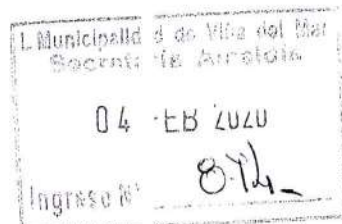 I. Municipalidad de Viña del Mar
Secretaría Alcaldía
04 FEB 2020
Ingreso N°